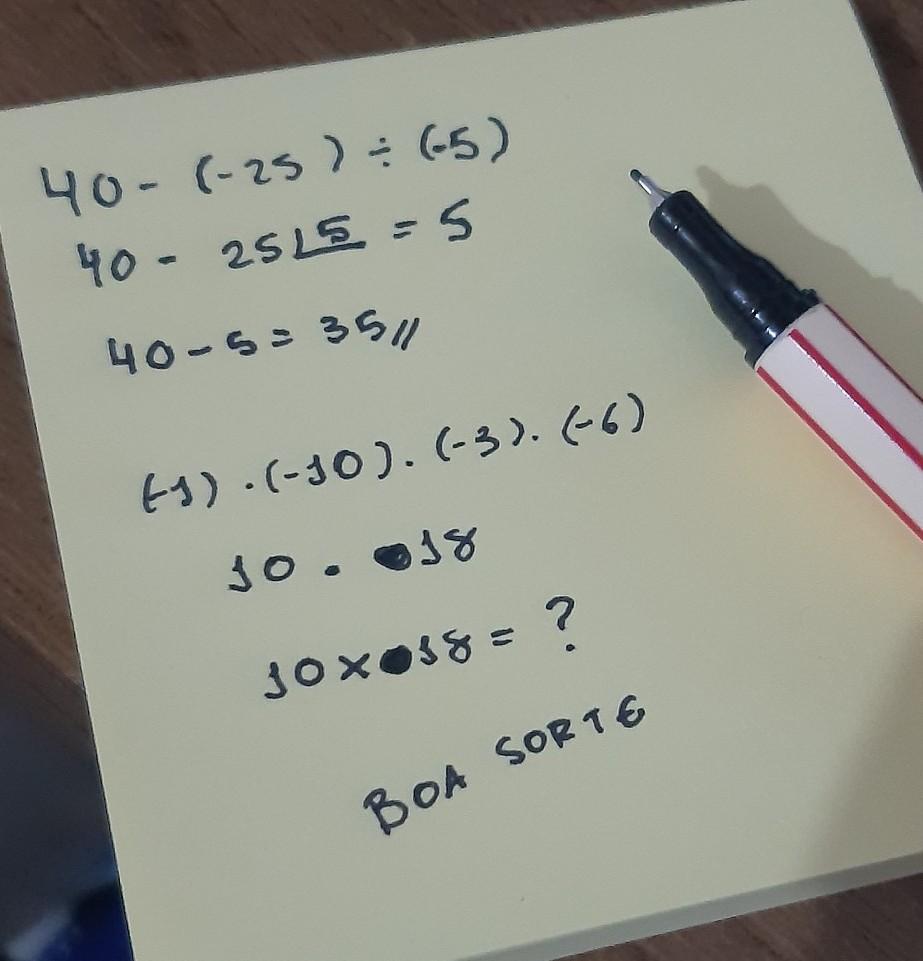 40 - (-25) ÷ (-5)
40 - 25 5 = 5
40 - 5 = 35 //
(-1) . (-10) . (-3) . (-6)
10 . 18
10 x 18 = ?
BOA SORTE